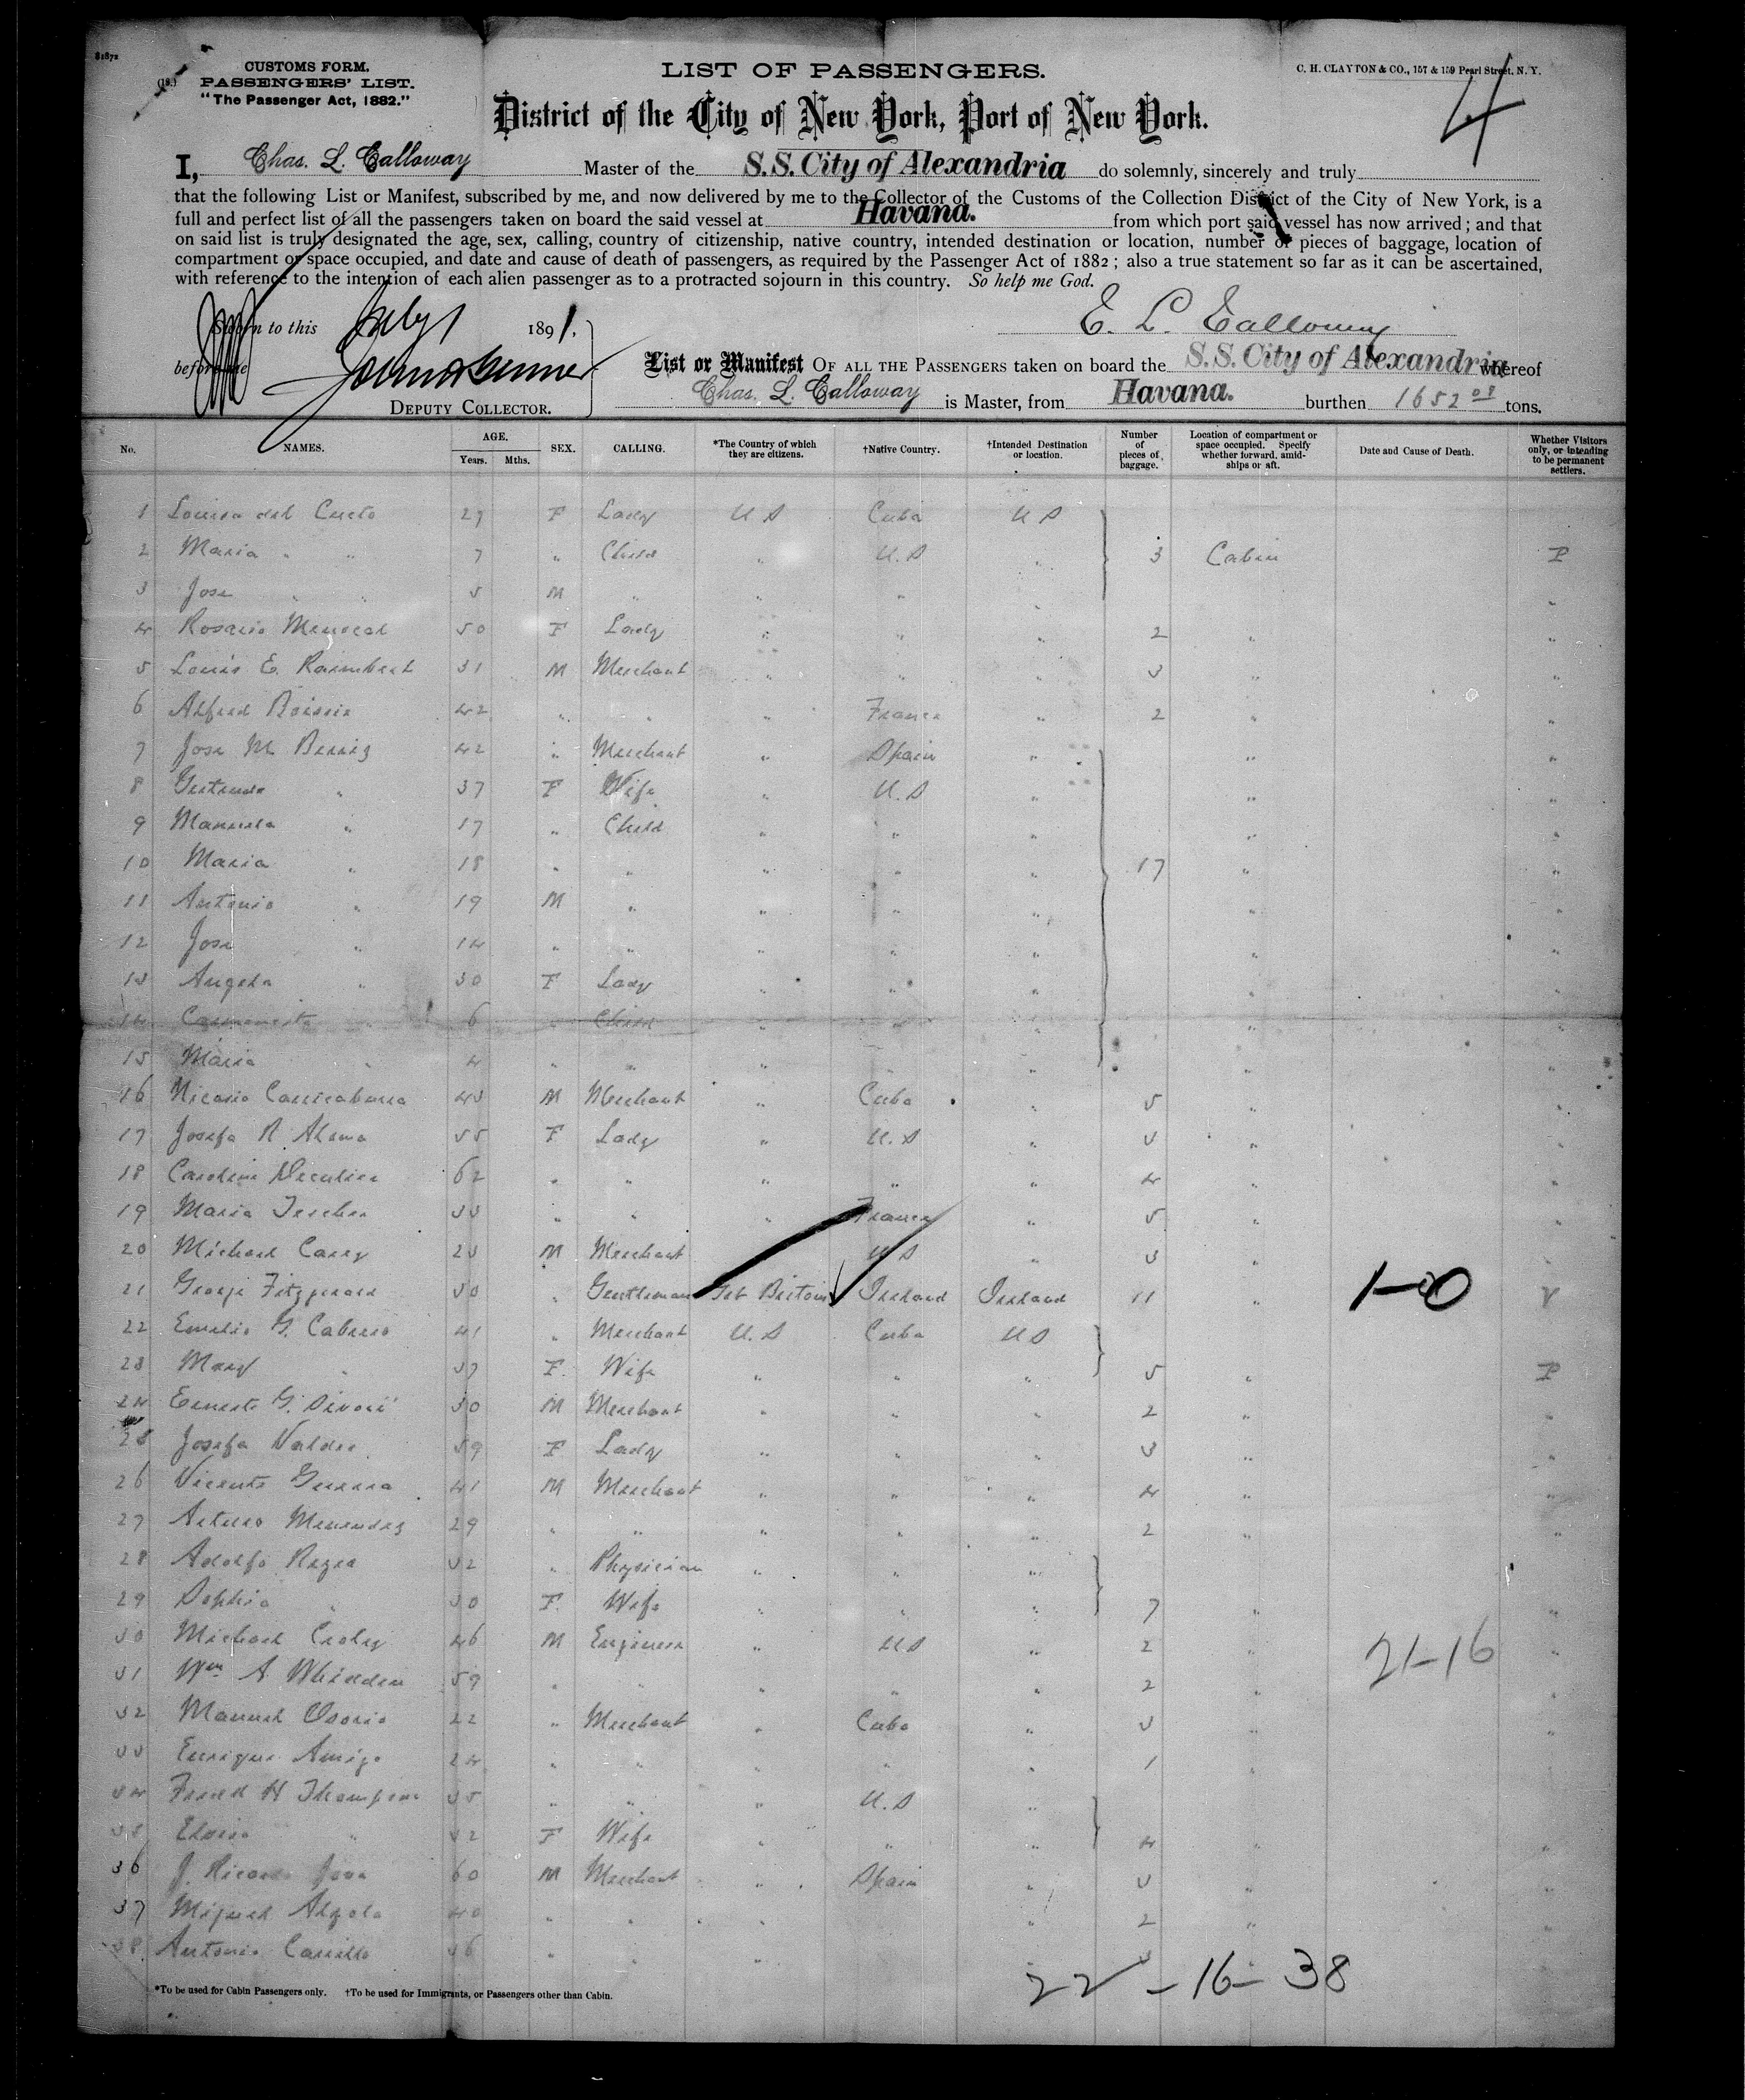 81872
CUSTOMS FORM.
PASSENGERS' LIST.
"The Passenger Act, 1882."
LIST OF PASSENGERS.
C. H. CLAYTON & CO., 157 & 159 Pearl Street, N. Y.
4
District of the City of New York, Port of New York.
I, Chas. L. Calloway Master of the S.S. City of Alexandria do solemnly, sincerely and truly
that the following List or Manifest, subscribed by me, and now delivered by me to the Collector of the Customs of the Collection District of the City of New York, is a
full and perfect list of all the passengers taken on board the said vessel at Havana. from which port said vessel has now arrived; and that
on said list is truly designated the age, sex, calling, country of citizenship, native country, intended destination or location, number of pieces of baggage, location of
compartment or space occupied, and date and cause of death of passengers, as required by the Passenger Act of 1882; also a true statement so far as it can be ascertained,
with reference to the intention of each alien passenger as to a protracted sojourn in this country. So help me God.
Sworn to this July 1 1891.
before me
DEPUTY COLLECTOR.
List or Manifest OF ALL THE PASSENGERS taken on board the S.S. City of Alexandria whereof
Chas. L. Calloway is Master, from Havana. burthen 1652 08 tons.
No. NAMES. AGE. Years. Mths. SEX. CALLING. *The Country of which they are citizens. †Native Country. †Intended Destination or location. Number of pieces of baggage. Location of compartment or space occupied. Specify whether forward, amidships or aft. Date and Cause of Death. Whether Visitors only, or intending to be permanent settlers.
1 Louisa del Cueto 29 F Lady U S Cuba U S
2 Maria " " 7 " Child " U.S " 3 Cabin P
3 Jose " " 5 M " " " " "
4 Rosario Menocal 50 F Lady " " " 2 " "
5 Louis E. Raimbeal 31 M Merchant " " " 3 " "
6 Alfred Boissie 42 " " " France " 2 " "
7 Jose M. Berriz 42 " Merchant " Spain " " "
8 Gertrude " 37 F Wife " U.S " " "
9 Manuela " 17 " Child " " " " "
10 Maria " 18 " " " " " 17 " "
11 Antonio " 19 M " " " " " "
12 Jose " 14 " " " " " " "
13 Angela " 30 F Lady " " " " "
14 " 6 " Child " " " " "
15 Maria " 4 " " " " " " "
16 Nicasio 43 M Merchant " Cuba " 5 " "
17 Josefa R. Alama 55 F Lady " U.S " 3 " "
18 Caroline 62 " " " " " 4 " "
19 Maria 33 " " " France " 5 " "
20 Michael Casey 23 M Merchant U S " 3 "
21 George Fitzgerald 50 " Gentleman Gt Britain Ireland Ireland 11 " 1-0 V
22 Emilio G. Cabrero 41 " Merchant U.S Cuba U S
23 Mary " 37 F. Wife " " " 5 " P
24 Ernesto G. 30 M Merchant " " " 2 " "
25 Josefa Valdes 59 F Lady " " " 3 " "
26 Vicente Guerra 41 M Merchant " " " 4 " "
27 Arturo Menendez 29 " " " " " 2 " "
28 Adolfo Reyes 32 " Physician " " "
29 Sophia " 30 F. Wife " " " 7 " "
30 Michael Croley 46 M Engineer " U S " 2 " 21-16 "
31 Wm A. Whidden 59 " " " " " 2 " "
32 Manuel Osorio 22 " Merchant " Cuba " 3 " "
33 Enrique Amigo 24 " " " " " 1 "
34 Frank H Thompson 35 " " " U.S "
35 Eloisa " 32 F Wife " " " 4 " "
36 J. Ricardo 60 M Merchant " Spain " 3 " "
37 Miguel 40 " " " " 2 " "
38 Antonio Carrillo 36 " " " 3
22 - 16 - 38
*To be used for Cabin Passengers only. †To be used for Immigrants, or Passengers other than Cabin.